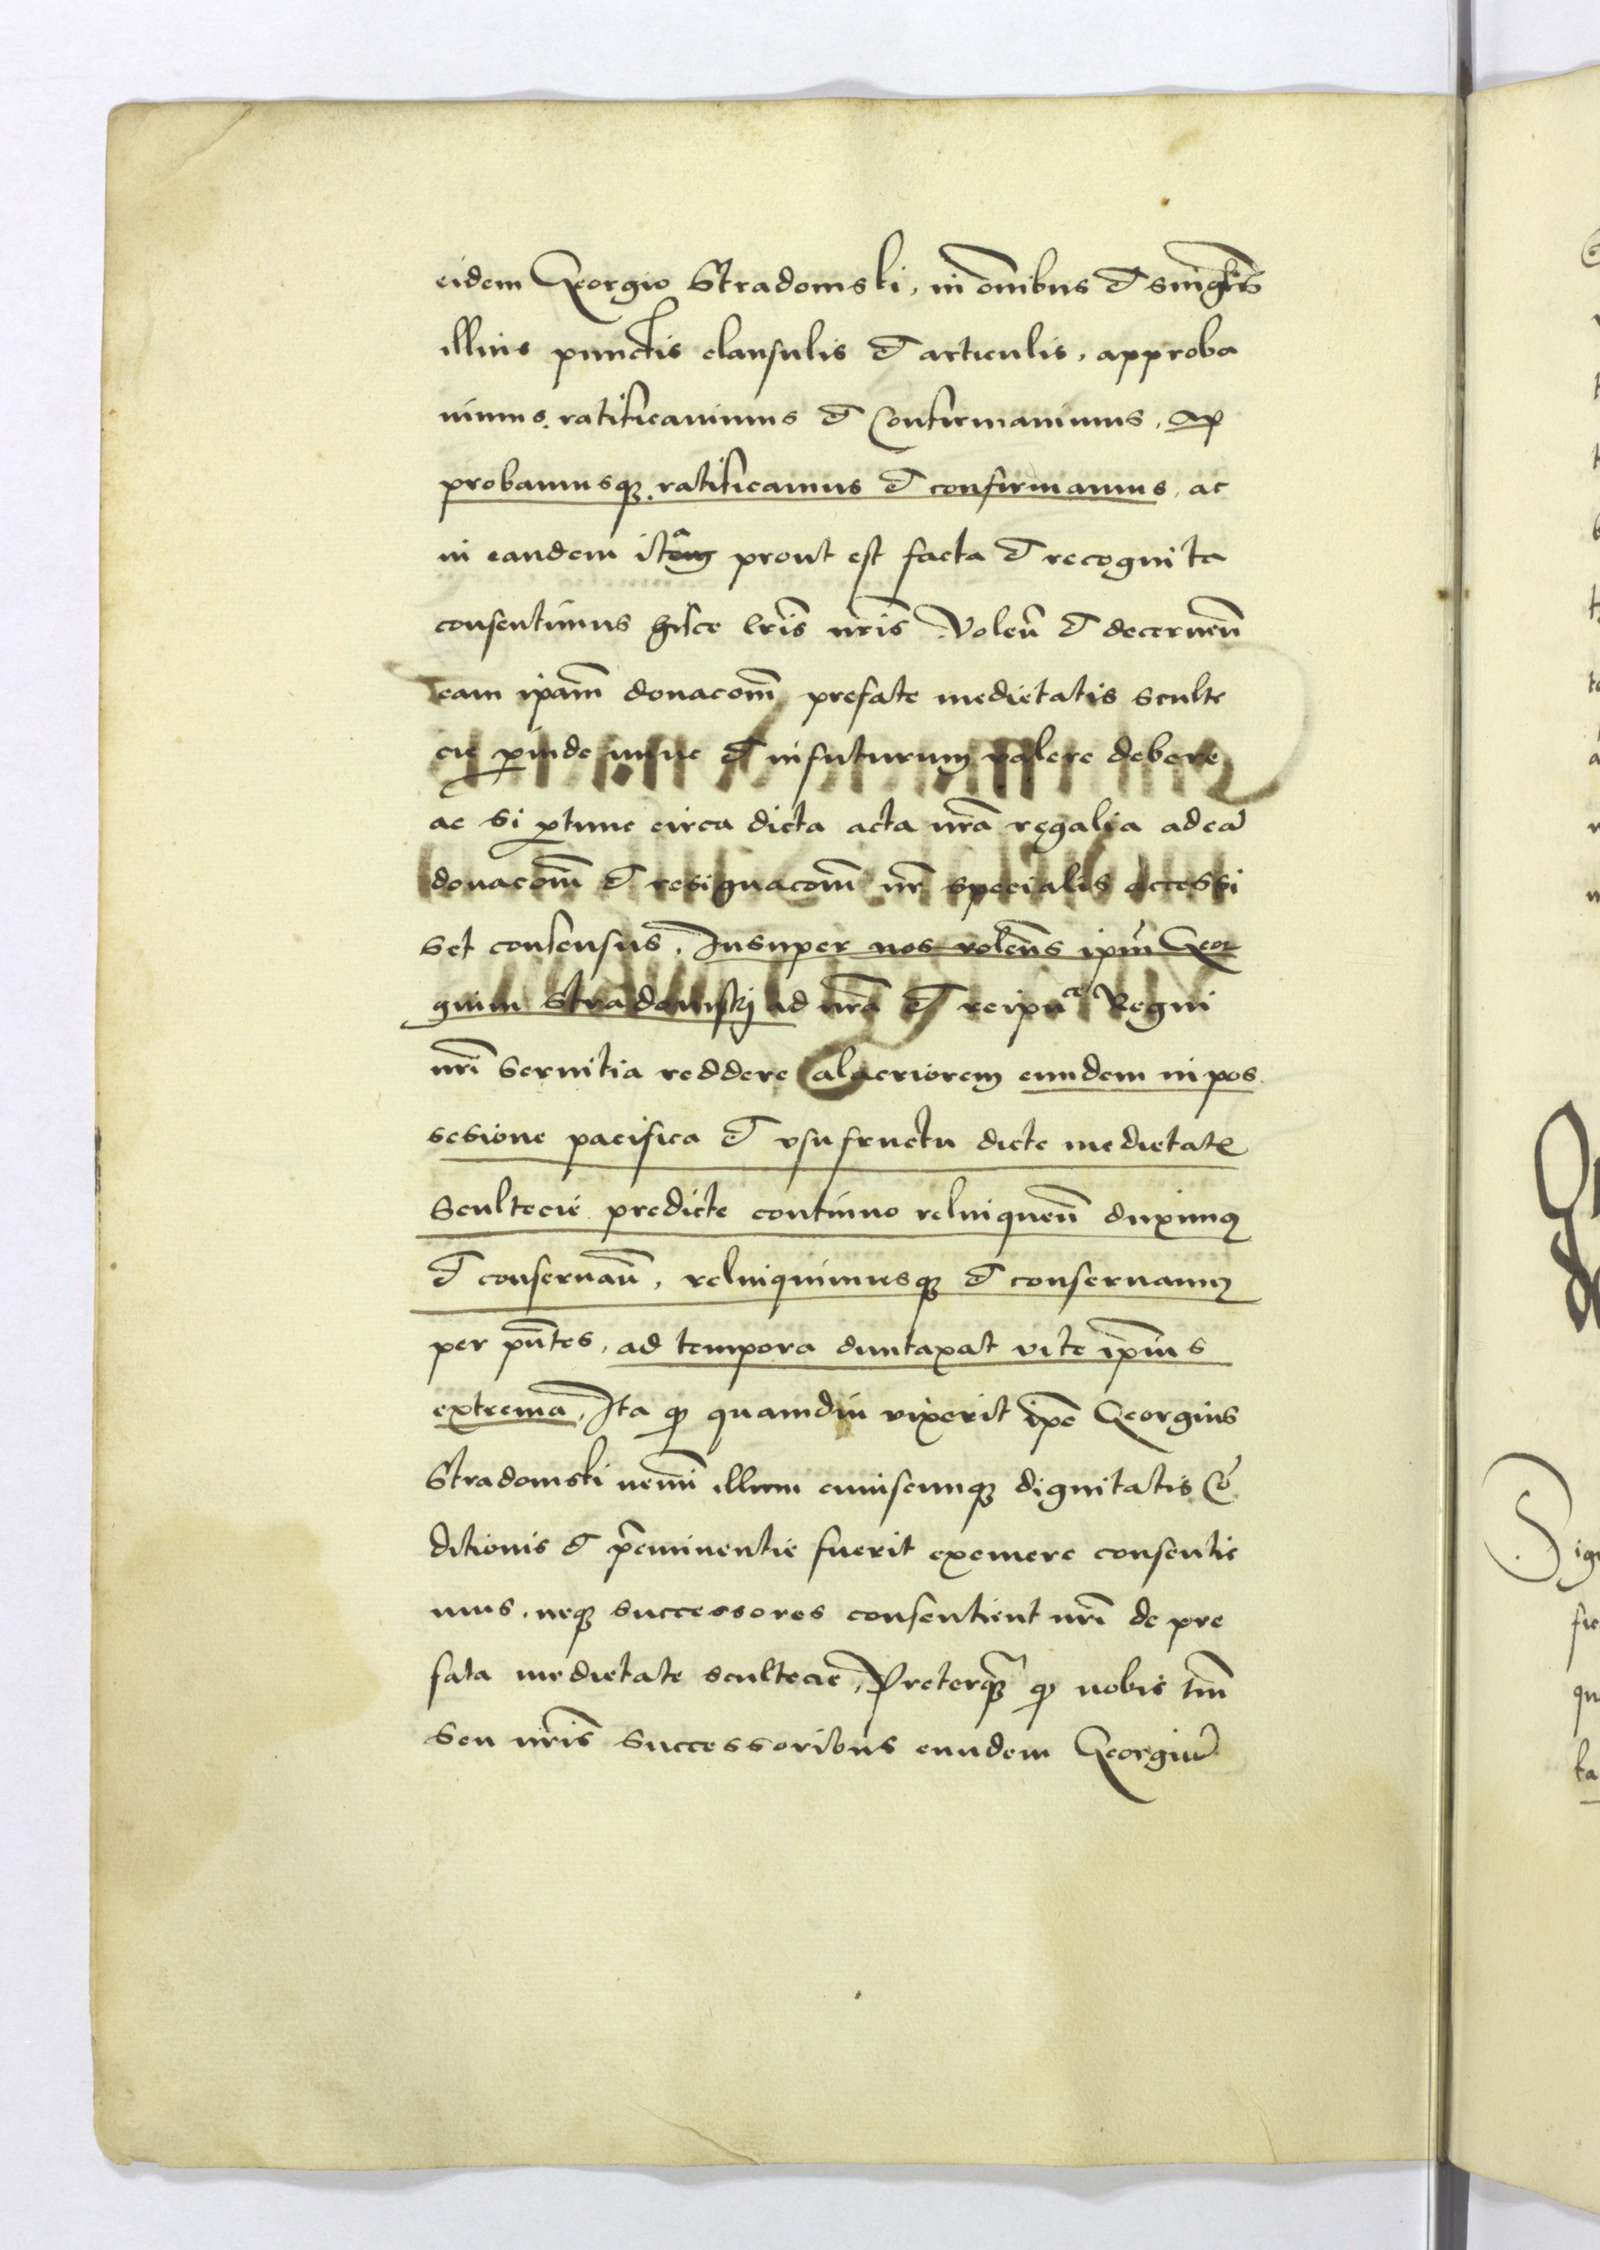 eidem Georgio Stradomski, in om̄ibus et singl̄is
illius punctis clausulis et articulis, approba
uimus, ratificauimus et Confirmauimus, Ap
probamusqꝫ, ratificamus et confirmamus, ac
in eandem prout est facta et recognita
consentimus hisce lrīs nrīs, Volen̄ et decernen̄
eam ipām donacōm prefate medietatis sculte
cie ꝑinde nunc et in futurum valere debere
ac si ꝑtunc circa dicta acta nrā regalia ad eā
donacōm et resignacōm nr̄ specialis accessi
set consensus, Insuper nos volen̄s ipm̄ Geor
gium Stradomskj ad nrā et reipuce Regni
nrī seruitia reddere alacriorem eundem in pos
sesione pacifica et vsufructu dicte medietatꝭ
Scultecie predicte continuo relinquen̄ duximꝰ
et conseruan̄, relinquimusqꝫ et conseruamꝰ
per pn̄tes, ad tempora duntaxat vite ip̄ius
extrema, Ita ꝙ quamdiu vixerit ip̄e Georgius
Stradomski nemī illum cuiuscunqꝫ dignitatis Cō
ditionis et p̄eminentie fuerit exemere consentie
mus, neqꝫ successores consentient nrī de pre
fata medietate scultecie, Preterqꝫ̄ ꝙ nobis tm̄
seu nrīs Successoribus eundem Georgiū